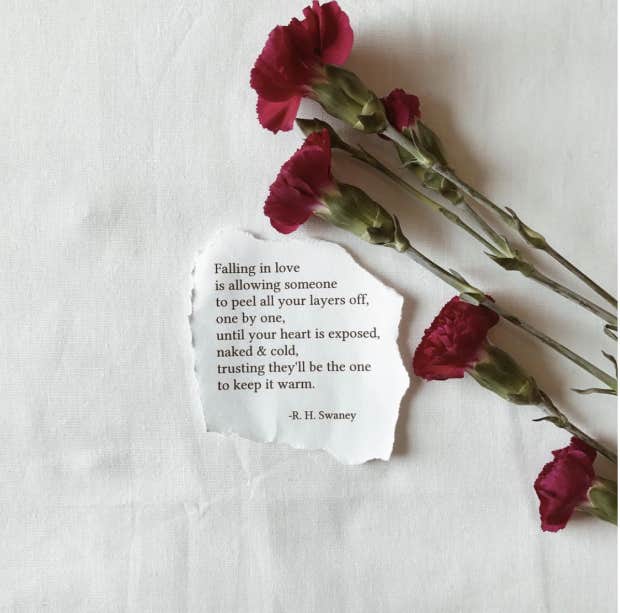 Falling in love
is allowing someone
to peel all your layers off,
one by one,
until your heart is exposed,
naked & cold,
trusting they'll be the one
to keep it warm.
-R. H. Swaney